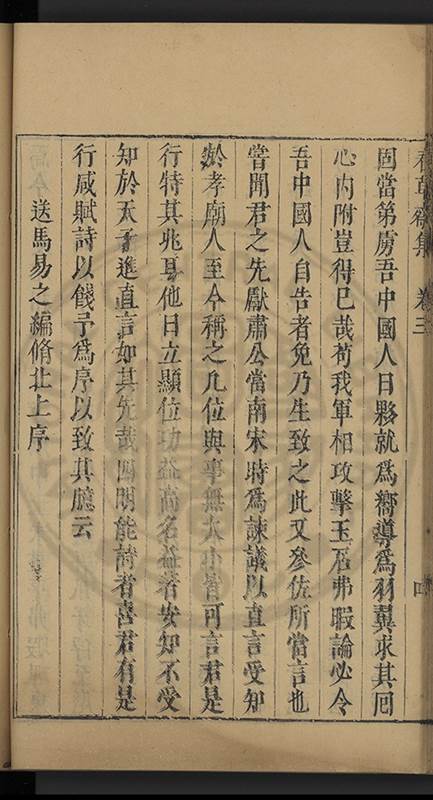 春草齋集 卷三 四
固當第虜吾中國人日夥就為嚮導為羽翼求其囘
心內附豈得已哉苟我軍相攻擊玉石弗暇論必令
吾中國人自告者免乃生致之此又參佐所當言也
嘗聞君之先獻肅公當南宋時為諫議以直言受知
於孝廟人至今稱之凡位與事無大小皆可言君是
行特其兆耳他日立顯位功益高名益著安知不受
知於天子進直言如其先哉四明能詩者喜君有是
行咸賦詩以餞予為序以致其臆云
送馬易之編脩北上序